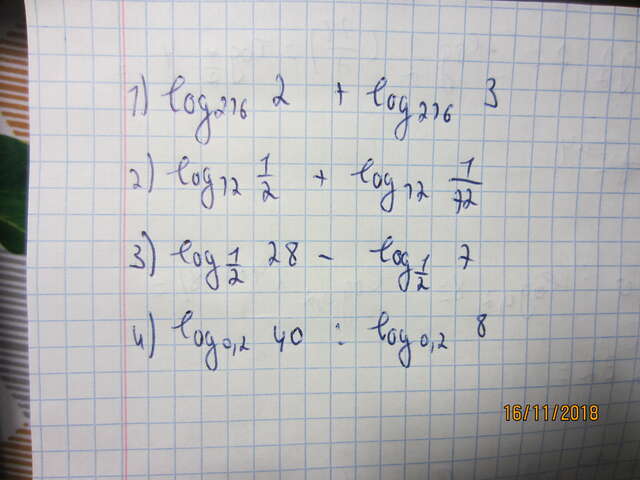 1) log₂₁₆ 2 + log₂₁₆ 3
2) log₁₂ 1/2 + log₁₂ 1/72
3) log_1/2 28 - log_1/2 7
4) log₀,₂ 40 : log₀,₂ 8
16/11/2018